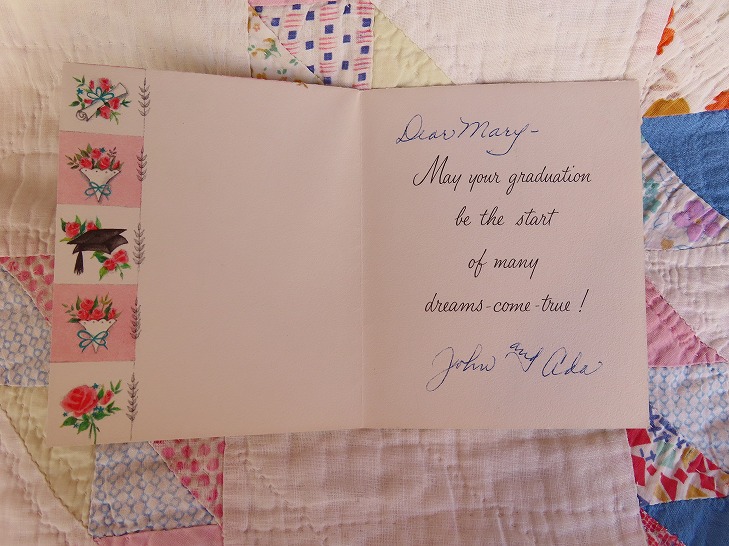 Dear Mary-
May your graduation
be the start
of many
dreams-come-true!
John and Ada